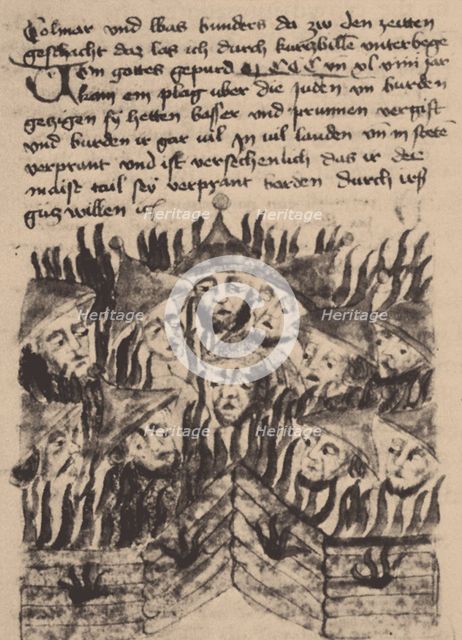 Colmar und was wunders da zw den zeitten
geschacht daz las ich durch kurczwillen unterwege
Von gottes gepurd MCCC un xl viiii jar
kam ein plag uber die juden un wurden
geczigen sy hetten wasser und prunnen vergift
und wurden ir gar vil in vil landen un in steten
verprant und ist versechenlich das ir der
maist tail sey verprant worden durch irs
gutz willen
Heritage
Heritage
Heritage
Heritage
Heritage
Heritage
Heritage
Heritage
Heritage
C